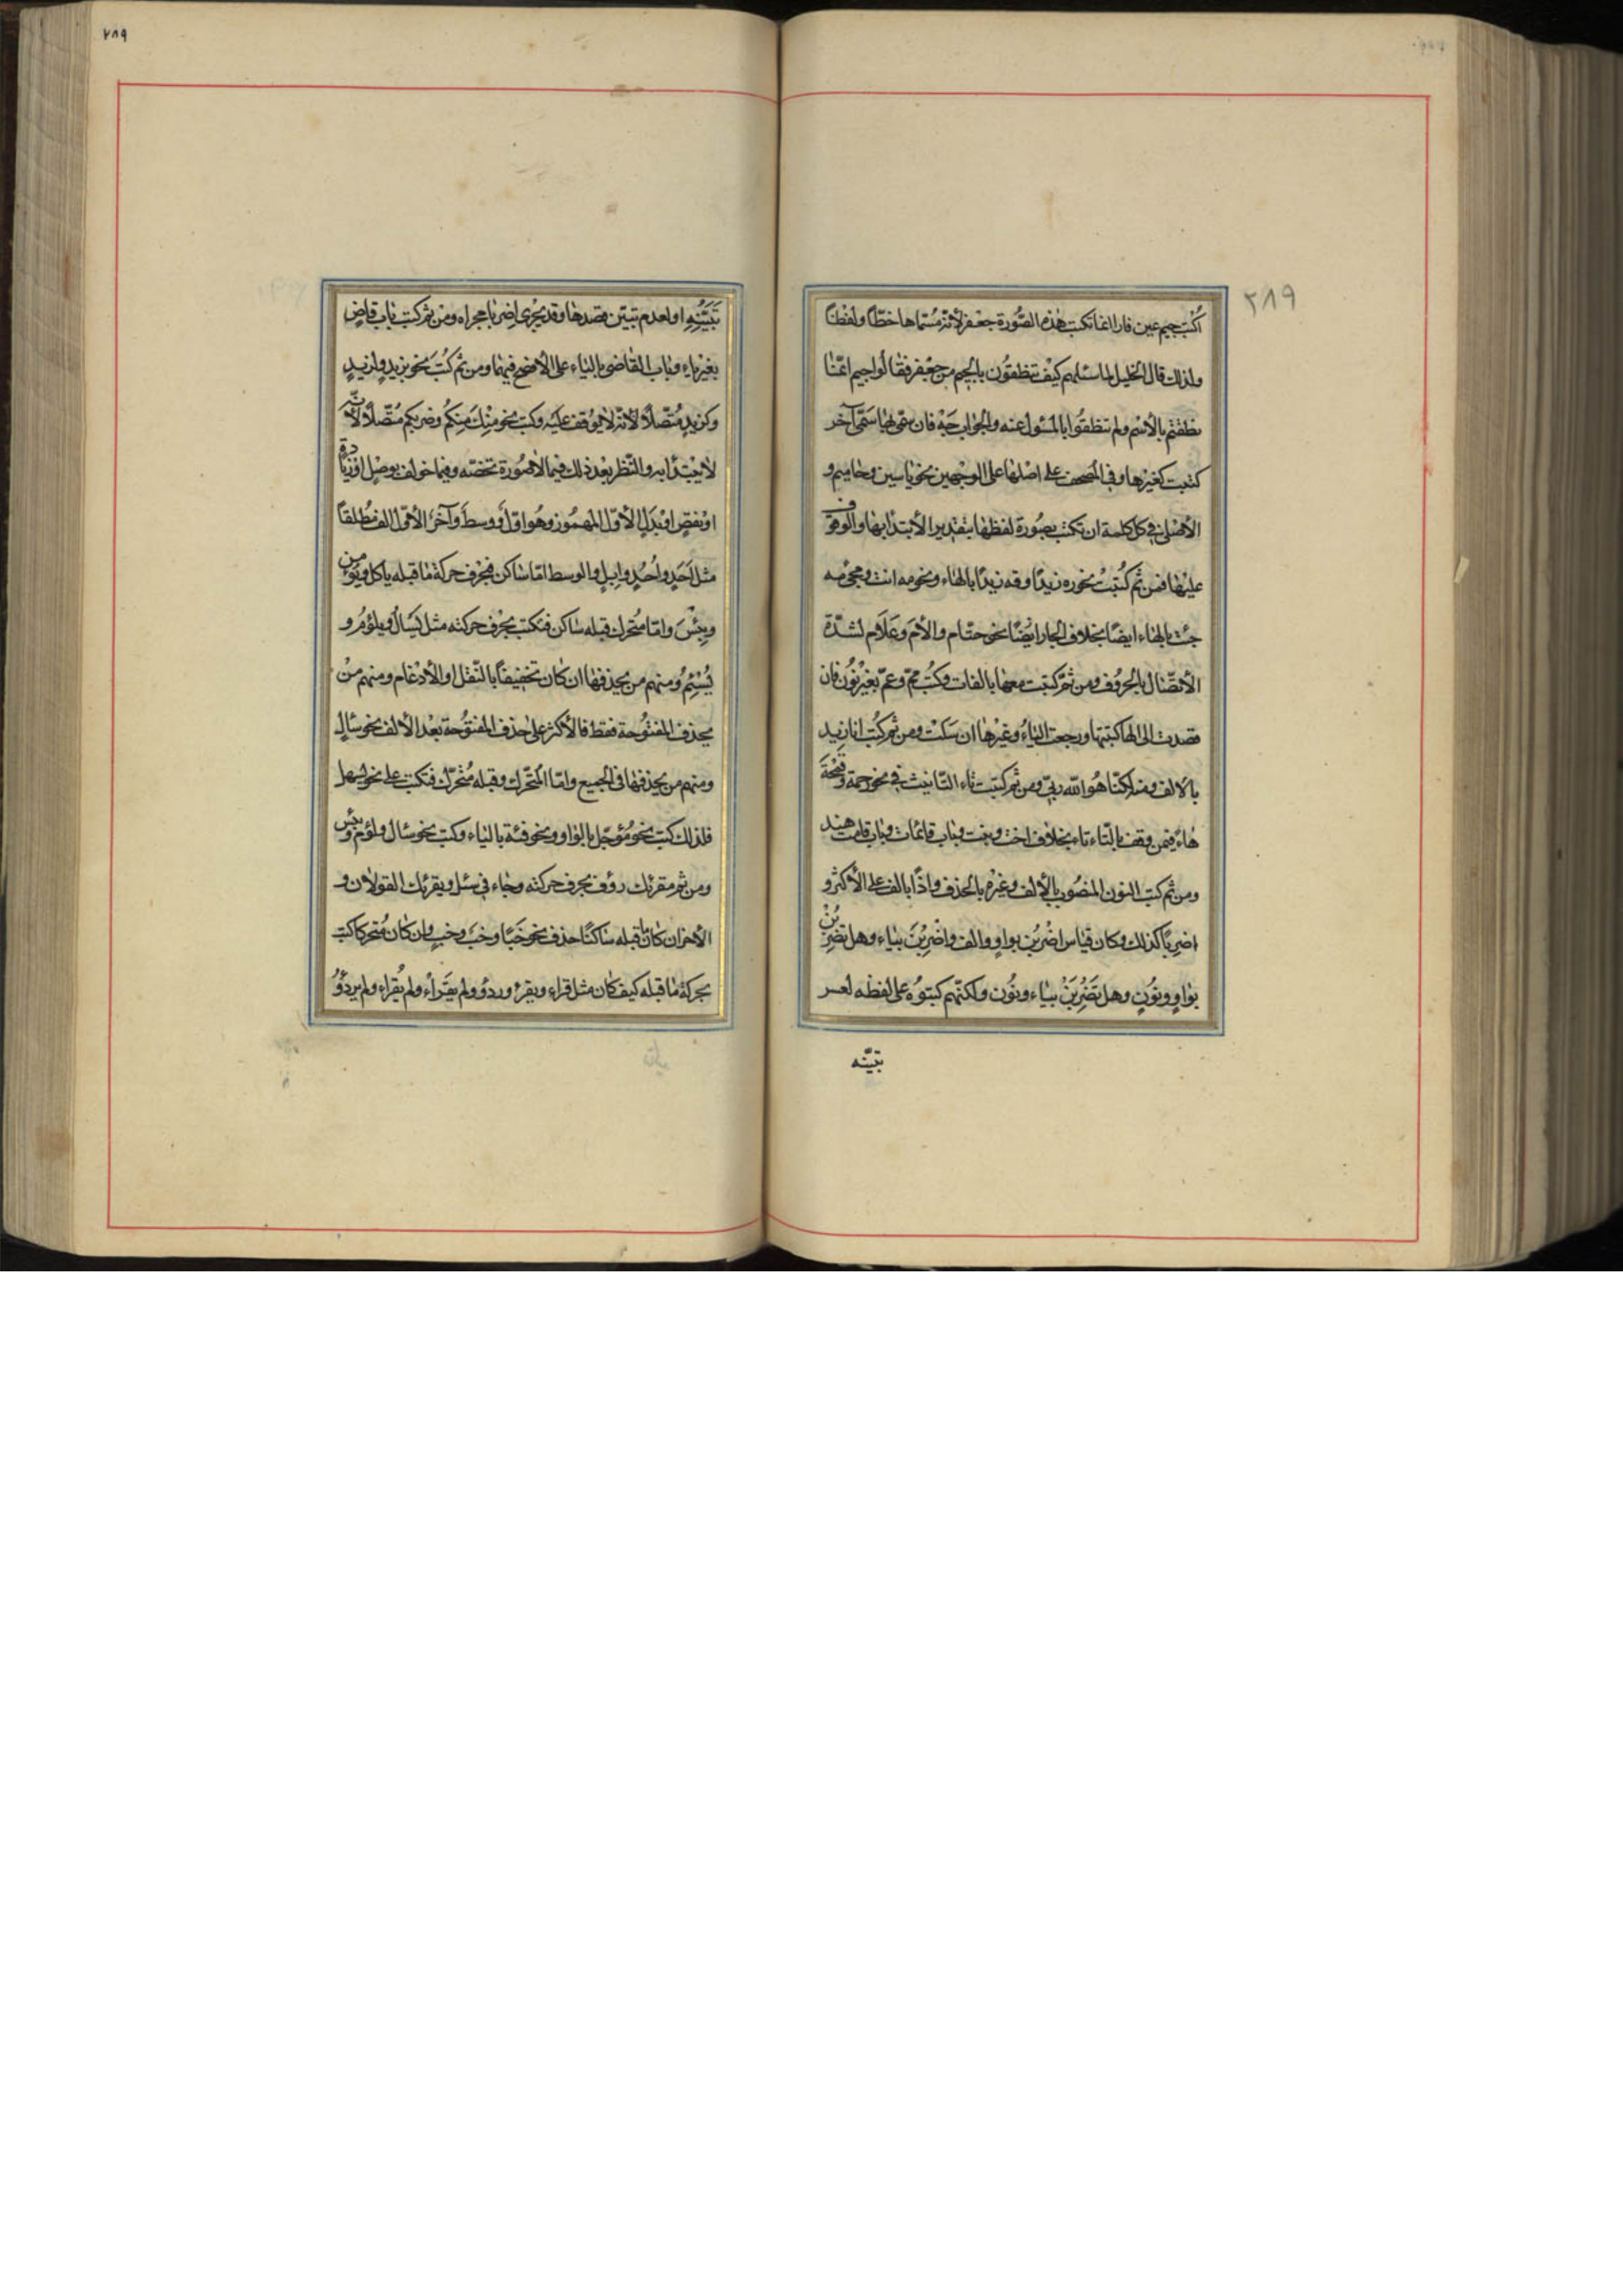 ٣٨٩
اكتب جيم عين فا را انما تكتب هذه الصورة جعفر لانه مسماها خطا ولفظا
ولذلك قال الخليل لما سئلهم كيف تنطقون بالجيم من جعفر فقالوا جيم انما
نطقتم بالاسم ولم تنطقوا بالمسئول عنه والجواب جه فان سمى بها مسمى آخر
كتبت كغيرها وفي المصحف على اصلها على الوجهين نحو ياسين وحاميم و
الاصل في كل كلمة ان تكتب بصورة لفظها بتقدير الابتدا بها والوقوف
عليها فمن ثم كتبت نحو ره زيدا وقه زيدا بالهاء ونحو مه انت ومجئ مه
جئت بالهاء ايضا بخلاف الجار ايضا نحو حتام والام وعلام لشدة
الاتصال بالحروف ومن ثم كتبت معها بالفات وكتب مم وعم بغير نون فان
قصدت الى الها كتبتها ورجعت الياء وغيرها ان سكت ومن ثم كتب انا زيد
بالالف ومنه لكنا هو الله ربي ومن ثم كتبت تاء التانيث في نحو رحمة وقمحة
هاء فيمن وقف بالتاء تاء بخلاف اخت وبنت وباب قائمات وباب قامت هند
ومن ثم كتب النون المنصوب بالالف وغيره بالحذف واذا بالف على الاكثر و
اضربا كذلك وكان قياس اضربن بواو والف واضربن بياء وهل تضربن
بواو ونون وهل تضربن بياء ونون ولكنهم كتبوه على لفظه لعسر
تبينه
٢٨٩
تبينه او لعدم تبين قصدها وقد يجرى اضربا مجراه ومن ثم كتب باب قاض
بغير ياء وباب القاضى بالياء على الافصح فيهما ومن ثم كتب نحو بزيد ولزيد
وكزيد متصلا لانه لا يوقف عليه وكتب نحو منك منكم وضربكم متصلا لانه
لا يبتدأ به والنظر بعد ذلك فيما لا صورة تخصه وفيما خولف بوصل او زيادة
او نقص او بدل الاول المهموز وهو اول ووسط وآخر الاول الف مطلقا
مثل احد واحد وابل والوسط اما ساكن فبحرف حركة ما قبله ياكل ويؤمن
وبئس واما متحرك قبله ساكن فتكتب بحرف حركته مثل يسال ويلؤم و
يسئم ومنهم من يحذفها ان كان تخفيفا بالنقل او الادغام ومنهم من
يحذف المفتوحة فقط فالاكثر على حذف المفتوحة بعد الالف نحو سائل
ومنهم من يحذفها في الجميع واما المتحرك وقبله متحرك فتكتب على نحو يسهل
فلذلك كتب نحو مؤجل بالواو ونحو فئة بالياء وكتب نحو سئال ولؤم وبئس
ومن ثم مقرئك رؤف بحرف حركته وجاء في سئل ويقرئك القولان و
الاخر ان كان ما قبله ساكنا حذف نحو خبا وخب وخب وان كان متحركا كتب
بحركة ما قبله كيف كان مثل قراء ويقرء وردؤ ولم يقراء ولم يقراء ولم يردؤ